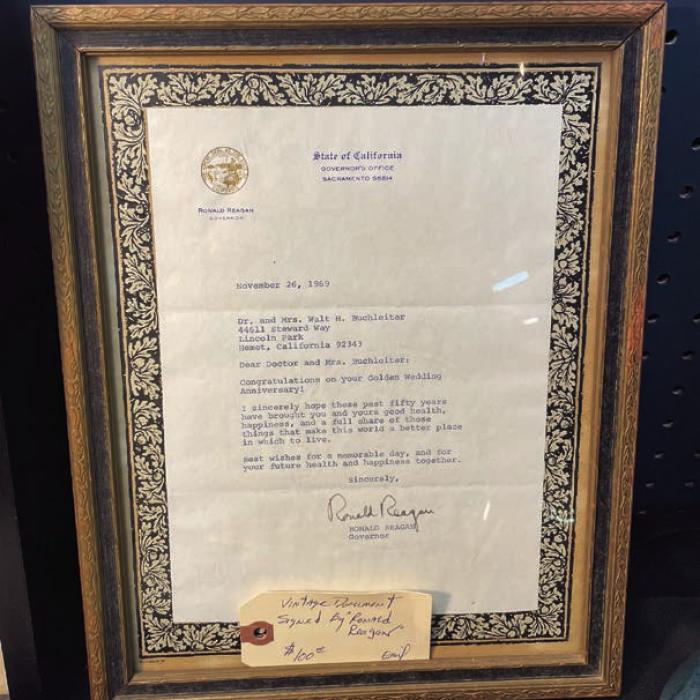 State of California
GOVERNOR'S OFFICE
SACRAMENTO 95814
RONALD REAGAN
GOVERNOR
November 26, 1969
Dr. and Mrs. Walt H. Buchleiter
44611 Steward Way
Lincoln Park
Hemet, California 92343
Dear Doctor and Mrs. Buchleiter:
Congratulations on your Golden Wedding
Anniversary!
I sincerely hope these past fifty years
have brought you and yours good health,
happiness, and a full share of those
things that make this world a better place
in which to live.
Best wishes for a memorable day, and for
your future health and happiness together.
Sincerely,
Ronald Reagan
RONALD REAGAN
Governor
Vintage Document
Signed By "Ronald
Reagan"
$100